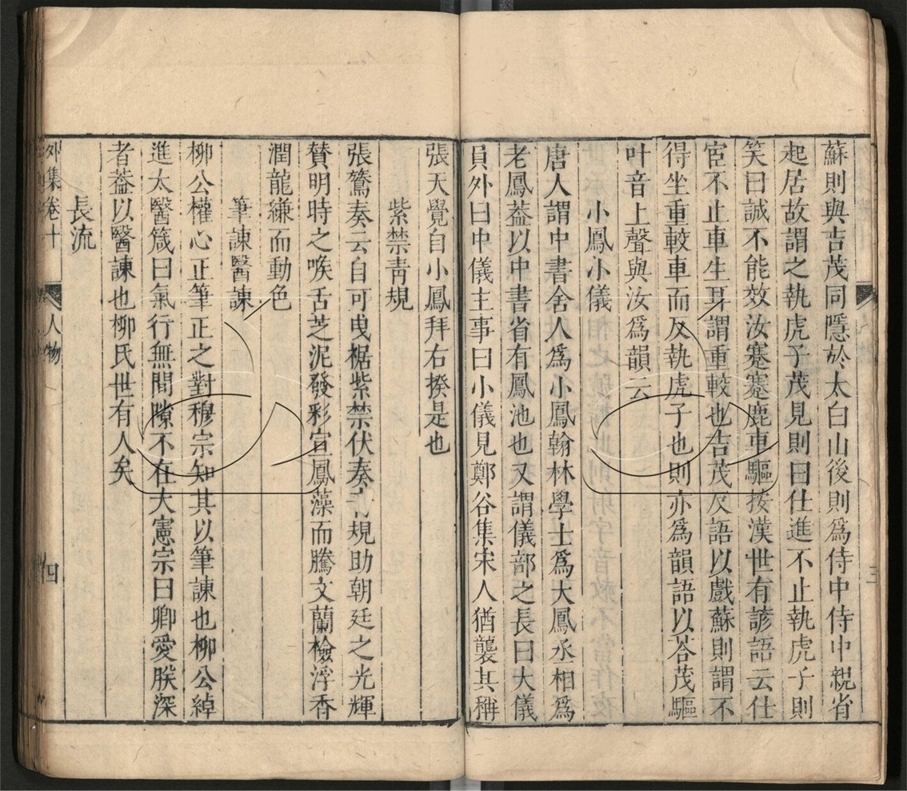 蘇則與吉茂同隱於太白山後則爲侍中侍中親省
起居故謂之執虎子茂見則曰仕進不止執虎子則
笑曰誠不能效汝蹇蹇鹿車驅按漢世有諺語云仕
宦不止車生耳謂重較也吉茂反語以戲蘇則謂不
得坐重較車而反執虎子也則亦爲韻語以荅茂驅
叶音上聲與汝爲韻云
小鳳小儀
唐人謂中書舍人爲小鳳翰林學士爲大鳳丞相爲
老鳳葢以中書省有鳳池也又謂儀部之長曰大儀
員外曰中儀主事曰小儀見鄭谷集宋人猶襲其稱
張天覺自小鳳拜右揆是也
紫禁青規
張鷟奏云自可曳裾紫禁伏奏規助朝廷之光輝
賛明時之喉舌芝泥發彩宣鳳藻而騰文蘭檢浮香
潤龍縑而動色
筆諫醫諫
柳公權心正筆正之對穆宗知其以筆諫也柳公綽
進太醫箴曰氣行無間隙不在大憲宗曰卿愛朕深
者葢以醫諫也柳氏世有人矣
長流
外集卷十 人物 四